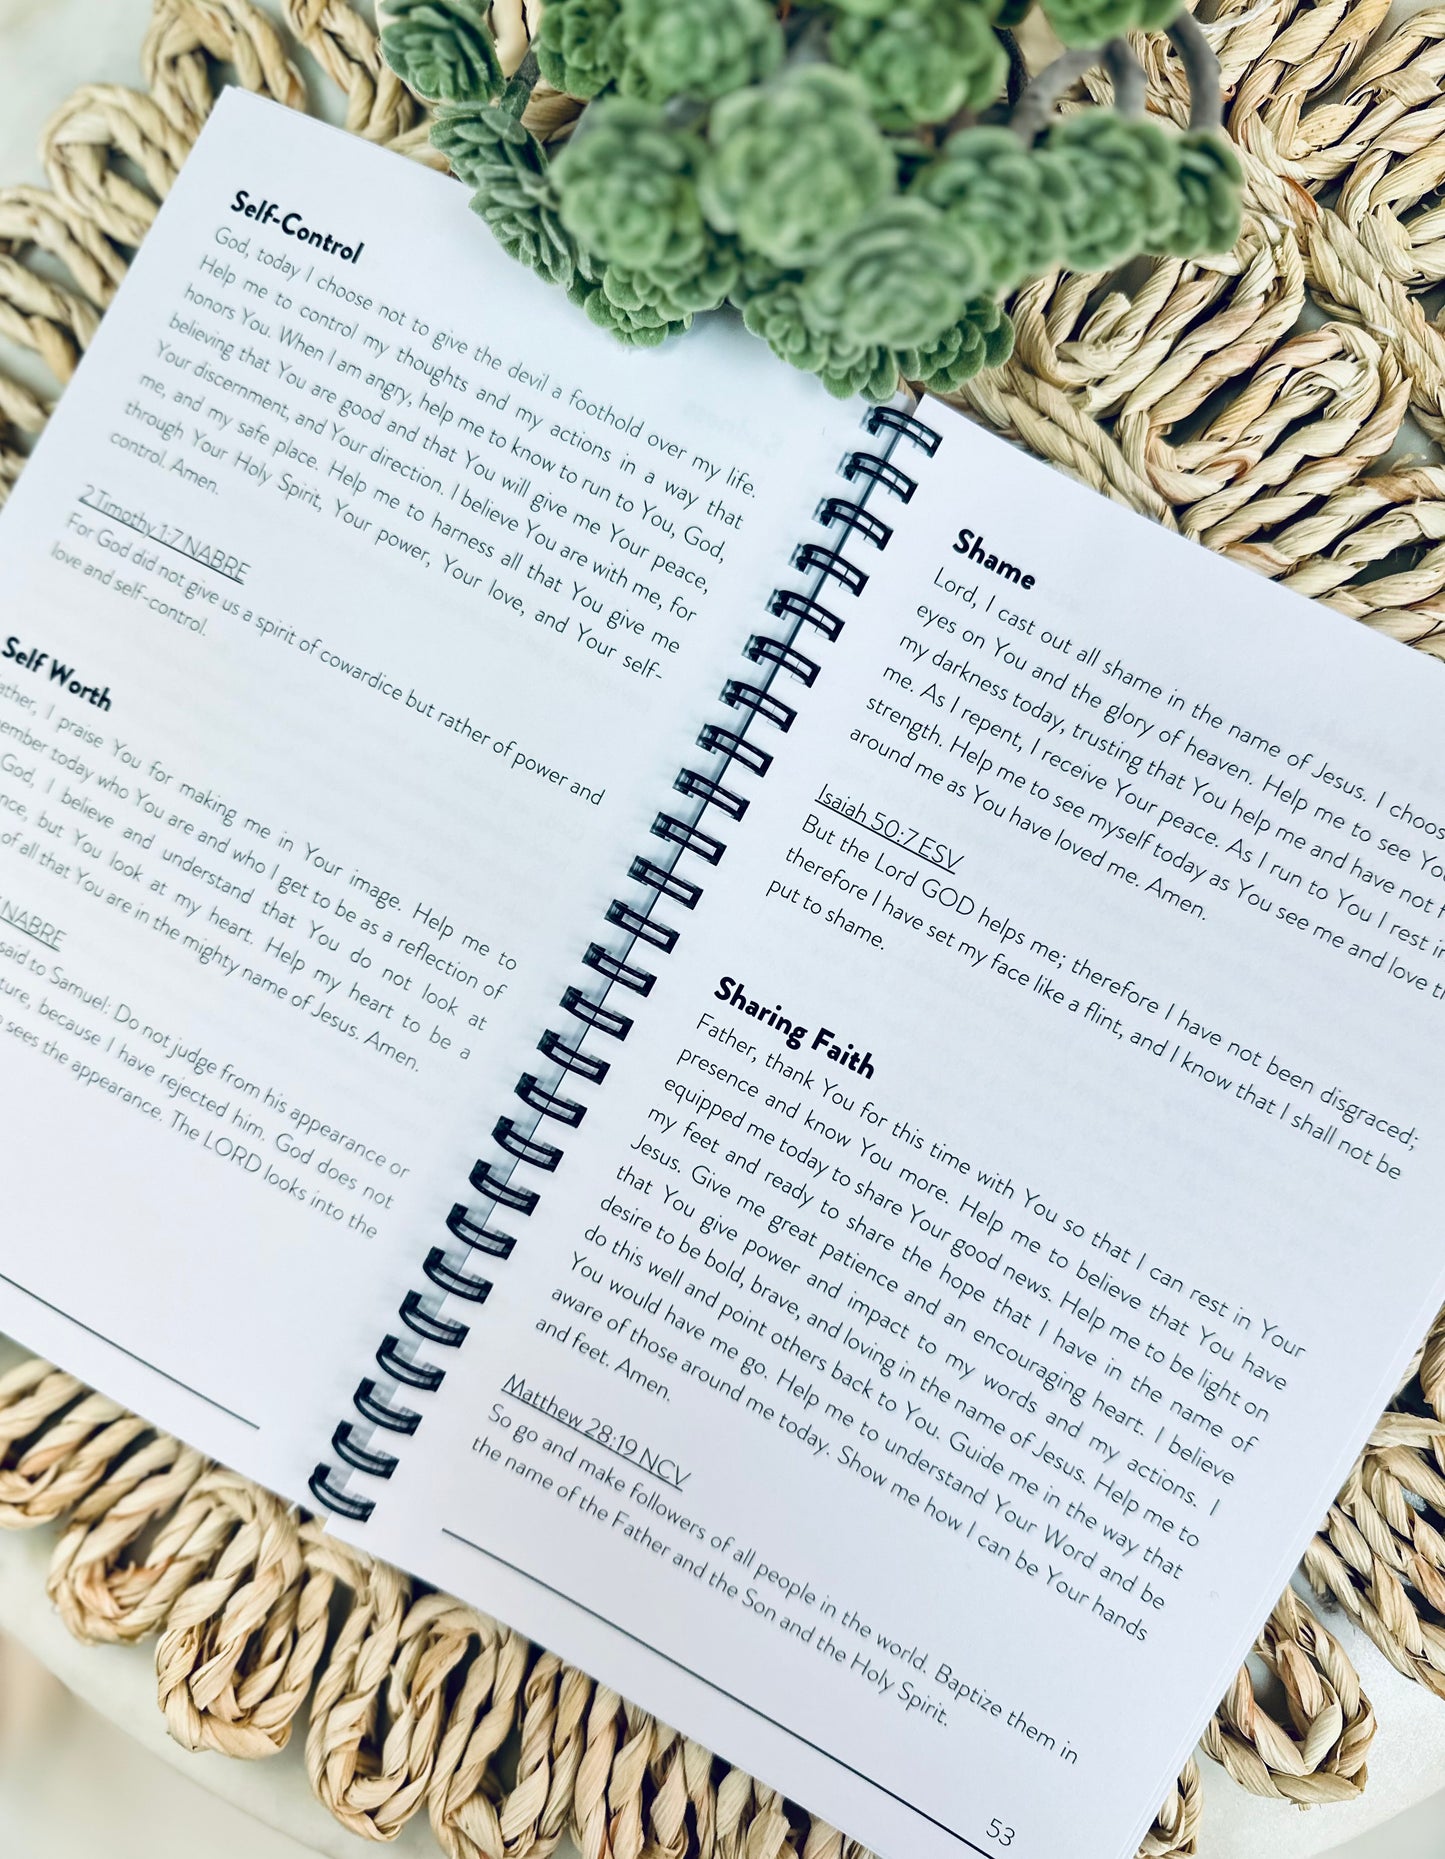 Self-Control
God, today I choose not to give the devil a foothold over my life.
Help me to control my thoughts and my actions in a way that
honors You. When I am angry, help me to know to run to You, God,
believing that You are good and that You will give me Your peace,
Your discernment, and Your direction. I believe You are with me, for
me, and my safe place. Help me to harness all that You give me
through Your Holy Spirit, Your power, Your love, and Your self-
control. Amen.
2 Timothy 1:7 NABRE
For God did not give us a spirit of cowardice but rather of power and
love and self-control.
Self Worth
ather, I praise You for making me in Your image. Help me to
ember today who You are and who I get to be as a reflection of
God, I believe and understand that You do not look at
nce, but You look at my heart. Help my heart to be a
of all that You are in the mighty name of Jesus. Amen.
NABRE
said to Samuel: Do not judge from his appearance or
ture, because I have rejected him. God does not
sees the appearance. The LORD looks into the
Shame
Lord, I cast out all shame in the name of Jesus. I choos
eyes on You and the glory of heaven. Help me to see You
my darkness today, trusting that You help me and have not f
me. As I repent, I receive Your peace. As I run to You I rest in
strength. Help me to see myself today as You see me and love th
around me as You have loved me. Amen.
Isaiah 50:7 ESV
But the Lord GOD helps me; therefore I have not been disgraced;
therefore I have set my face like a flint, and I know that I shall not be
put to shame.
Sharing Faith
Father, thank You for this time with You so that I can rest in Your
presence and know You more. Help me to believe that You have
equipped me today to share Your good news. Help me to be light on
my feet and ready to share the hope that I have in the name of
Jesus. Give me great patience and an encouraging heart. I believe
that You give power and impact to my words and my actions. I
desire to be bold, brave, and loving in the name of Jesus. Help me to
do this well and point others back to You. Guide me in the way that
You would have me go. Help me to understand Your Word and be
aware of those around me today. Show me how I can be Your hands
and feet. Amen.
Matthew 28:19 NCV
So go and make followers of all people in the world. Baptize them in
the name of the Father and the Son and the Holy Spirit.
53